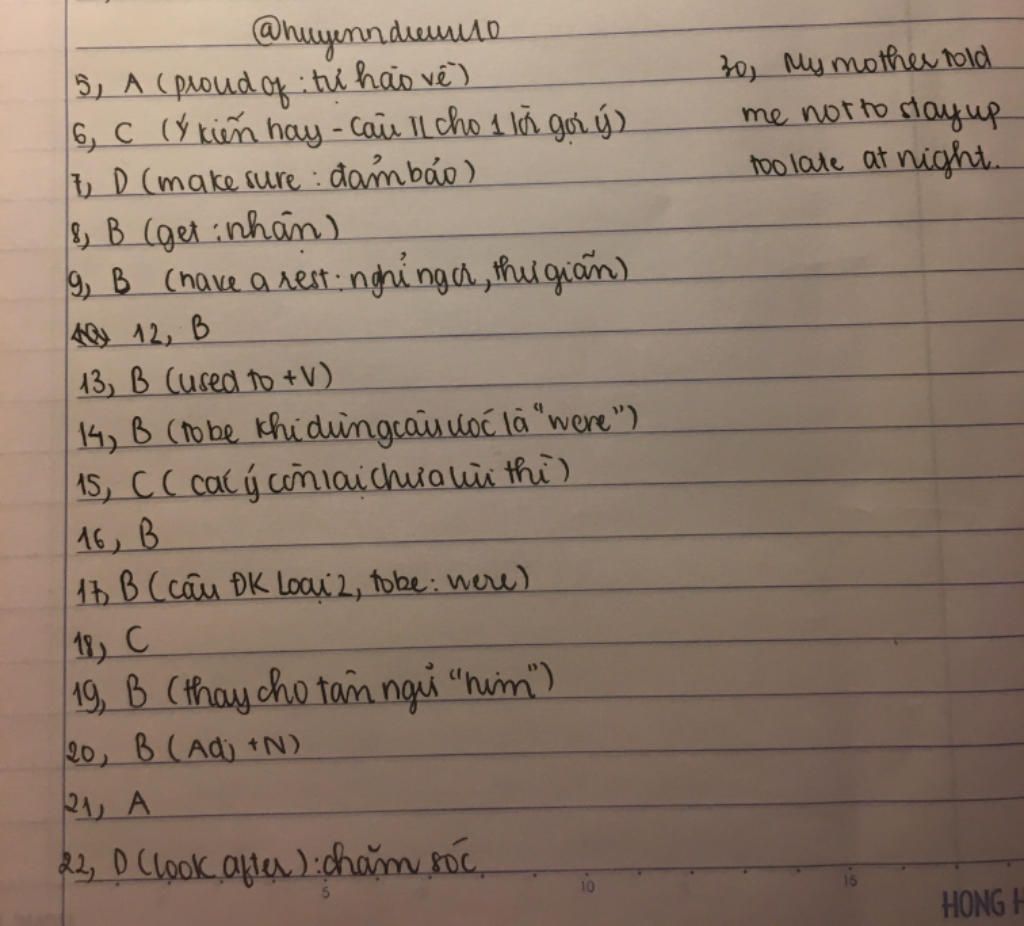 @huyenndieuu10
5, A (proud of : tự hào về)
6, C (Ý kiến hay - Câu TL cho 1 lời gợi ý)
7, D (make sure : đảm bảo)
8, B (get : nhận)
9, B (have a rest : nghỉ ngơi, thư giãn)
12, B
13, B (used to + V)
14, B (tobe khi dùng câu ước là "were")
15, C ( các ý còn lại chưa lùi thì )
16, B
17, B (câu ĐK Loại 2, tobe : were)
18, C
19, B (thay cho tân ngữ "him")
20, B (Adj + N)
21, A
22, D (look after) : chăm sóc
30, My mother told
me not to stay up
too late at night.
5 10 15
HONG H